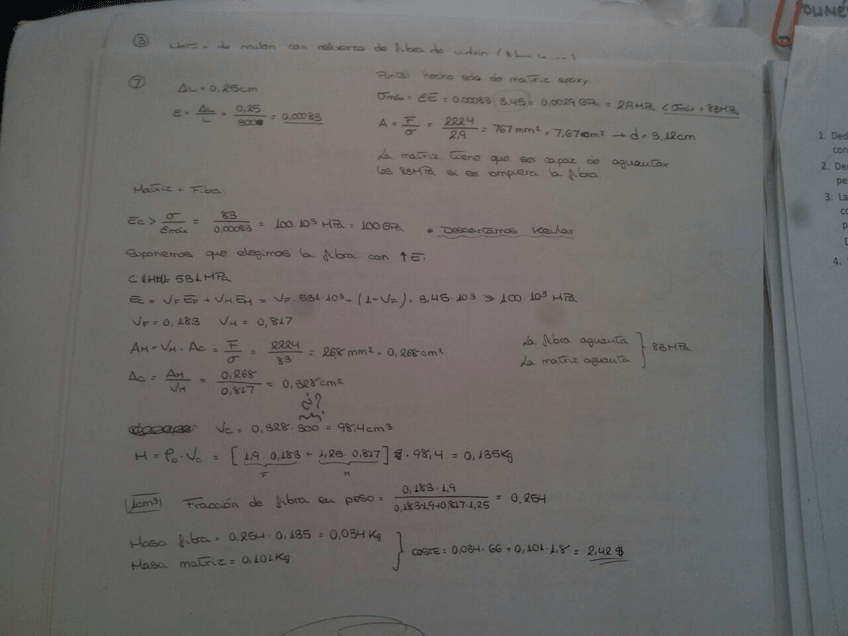 ③ de nailon con refuerzo de fibra de vidrio
⑦ ΔL = 0,25cm
ε = ΔL/L = 0,25/300 = 0,00083
hecho solo de matriz epoxy.
σmáx = εE = 0,00083 · 3,45 = 0,0029 GPa = 2,9 MPa < σmáx = 83 MPa
A = F/σ = 2224/2,9 = 767 mm² = 7,67cm² → d = 3,12cm
La matriz tiene que ser capaz de aguantar
los 83MPa si se rompiera la fibra
Matriz + Fibra:
Ec > σ/εmáx = 83/0,00083 = 100·10³ MPa = 100 GPa • Descartamos Kevlar
Suponemos que elegimos la fibra con ↑E:
C (HM) 531 MPa
Ec = VF EF + VM EM = VF · 531·10³ + (1-VF) · 3,45·10³ ≥ 100·10³ MPa
VF = 0,183 VM = 0,817
AM = VM · Ac = F/σ = 2224/83 = 268 mm² = 0,268cm²
La fibra aguanta
La matriz aguanta } 83MPa
Ac = AM/VM = 0,268/0,817 = 0,328 cm²
¿?
Vc = 0,328 · 300 = 98,4cm³
M = ρc · Vc = [1,9 · 0,183 + 1,25 · 0,817] · 98,4 = 0,135Kg
F M
1cm³ Fracción de fibra en peso = 0,183·1,9/0,183·1,9+0,817·1,25 = 0,254
Masa fibra = 0,254 · 0,135 = 0,034 Kg
Masa matriz = 0,101Kg
} COSTE = 0,034 · 66 + 0,101 · 1,8 = 2,42 $
1. Ded
con
2. De
pe
3. La
co
p
4.